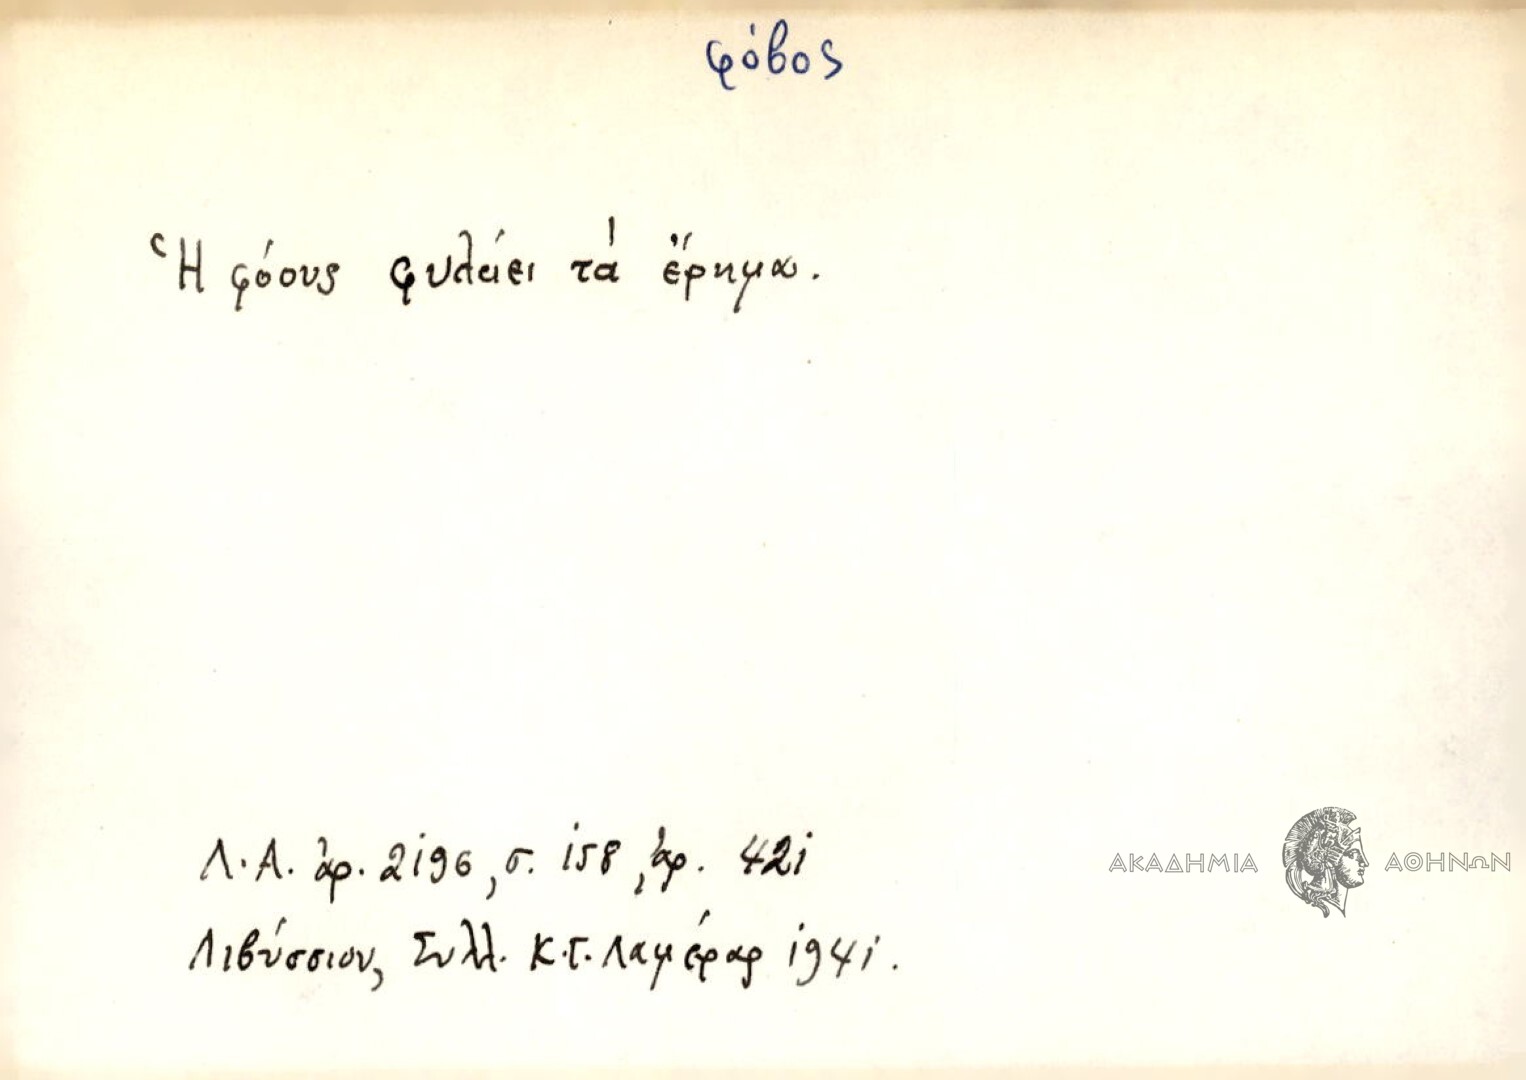 φόβος
Ἡ φόους φυλάει τὰ ἔρημα.
Λ.Α. ἀρ. 2196, σ. 158, ἀρ. 421
ΑΚΑΔΗΜΙΑ ΑΘΗΝΩΝ
Λιβύσσιον, Συλλ. Κ.Γ. Λαμέρας 1941.